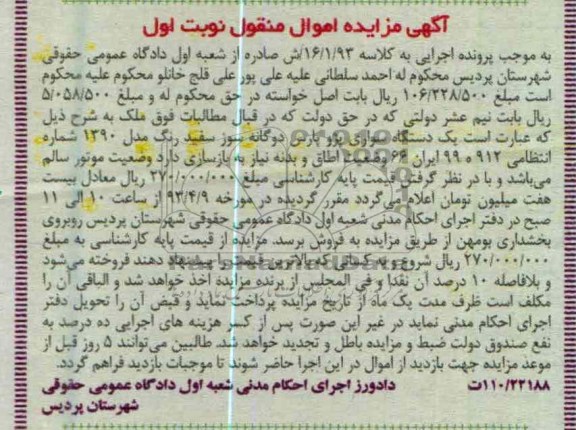 آگهی مزایده اموال منقول نوبت اول
به موجب پرونده اجرایی به کلاسه ۱۶/۱/۹۳/ش صادره از شعبه اول دادگاه عمومی حقوقی
شهرستان پردیس محکوم له احمد سلطانی علیه علی پور علی قلج خانلو محکوم علیه محکوم
است مبلغ ۱۰۶/۲۲۸/۵۰۰ ریال بابت اصل خواسته در حق محکوم له و مبلغ ۵/۰۵۸/۵۰۰
ریال بابت نیم عشر دولتی که در حق دولت که در قبال مطالبات فوق ملک به شرح ذیل
که عبارت است یک دستگاه سواری پژو پارس دوگانه سوز سفید رنگ مدل ۱۳۹۰ شماره
انتظامی ۹۱۲ ه ۹۹ ایران ۶۶ وضعیت اطاق و بدنه نیاز به بازسازی دارد وضعیت موتور سالم
میباشد و با در نظر گرفتن قیمت پایه کارشناسی مبلغ ۲۷۰/۰۰۰/۰۰۰ ریال معادل بیست
هفت میلیون تومان اعلام می‌گردد مقرر گردیده در مورخه ۹۳/۴/۹ از ساعت ۱۰ الی ۱۱
صبح در دفتر اجرای احکام مدنی شعبه اول دادگاه عمومی حقوقی شهرستان پردیس روبروی
بخشداری بومهن از طریق مزایده به فروش برسد. مزایده از قیمت پایه کارشناسی به مبلغ
۲۷۰/۰۰۰/۰۰۰ ریال شروع و به کسانی که بالاترین قیمت را پیشنهاد دهند فروخته می‌شود
و بلافاصله ۱۰ درصد آن نقدا و فی المجلس از برنده مزایده اخذ خواهد شد و الباقی آن را
مکلف است ظرف مدت یک ماه از تاریخ مزایده پرداخت نماید و قبض آن را تحویل دفتر
اجرای احکام مدنی نماید در غیر این صورت پس از کسر هزینه های اجرایی ده درصد به
نفع صندوق دولت ضبط و مزایده باطل و تجدید خواهد شد. طالبین می‌توانند ۵ روز قبل از
موعد مزایده جهت بازدید از اموال در این اجرا حاضر شوند تا موجبات بازدید فراهم گردد.
۱۱۰/۲۲۱۸۸ت دادورز اجرای احکام مدنی شعبه اول دادگاه عمومی حقوقی
شهرستان پردیس